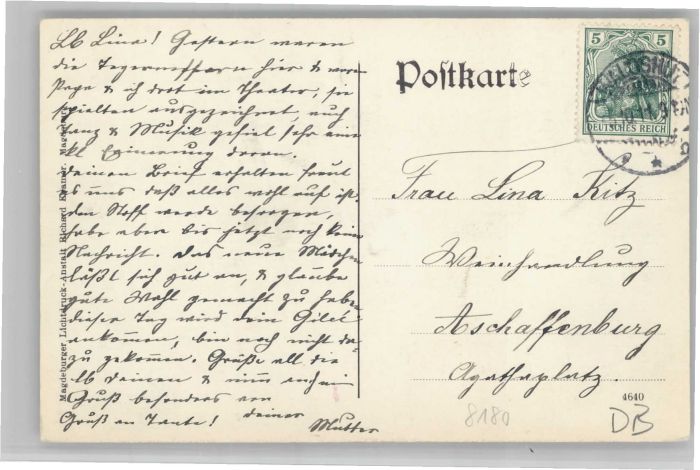 Lb Lina! Gestern waren
die Tegernseer hier & waren
Papa & ich dort im Theater, sie
spielten ausgezeichnet, auch
Tanz & Musik gefiel sehr eine
kl Erinnerung daran.
deinen Brief erhalten freut
es uns daß alles wohl auf ist.
den Stoff werde besorgen,
habe aber bis jetzt noch keine
Nachricht. Das neue Mädchen
läßt sich gut an, & glaube
gute Wahl gemacht zu haben
dieser Tag wird dein
ankommen, bin noch nicht da-
zu gekommen. Grüße all die
lb deinen & nimm auch ein
Gruß besonders von
Gruß an Tante! deiner
Mutter
Magdeburger Lichtdruck-Anstalt Richard Magdeburg
Postkarte
5 5
DEUTSCHES REICH
Frau Lina Kitz
Weinhandlung
Aschaffenburg
Agathaplatz.
4640
8180
DB